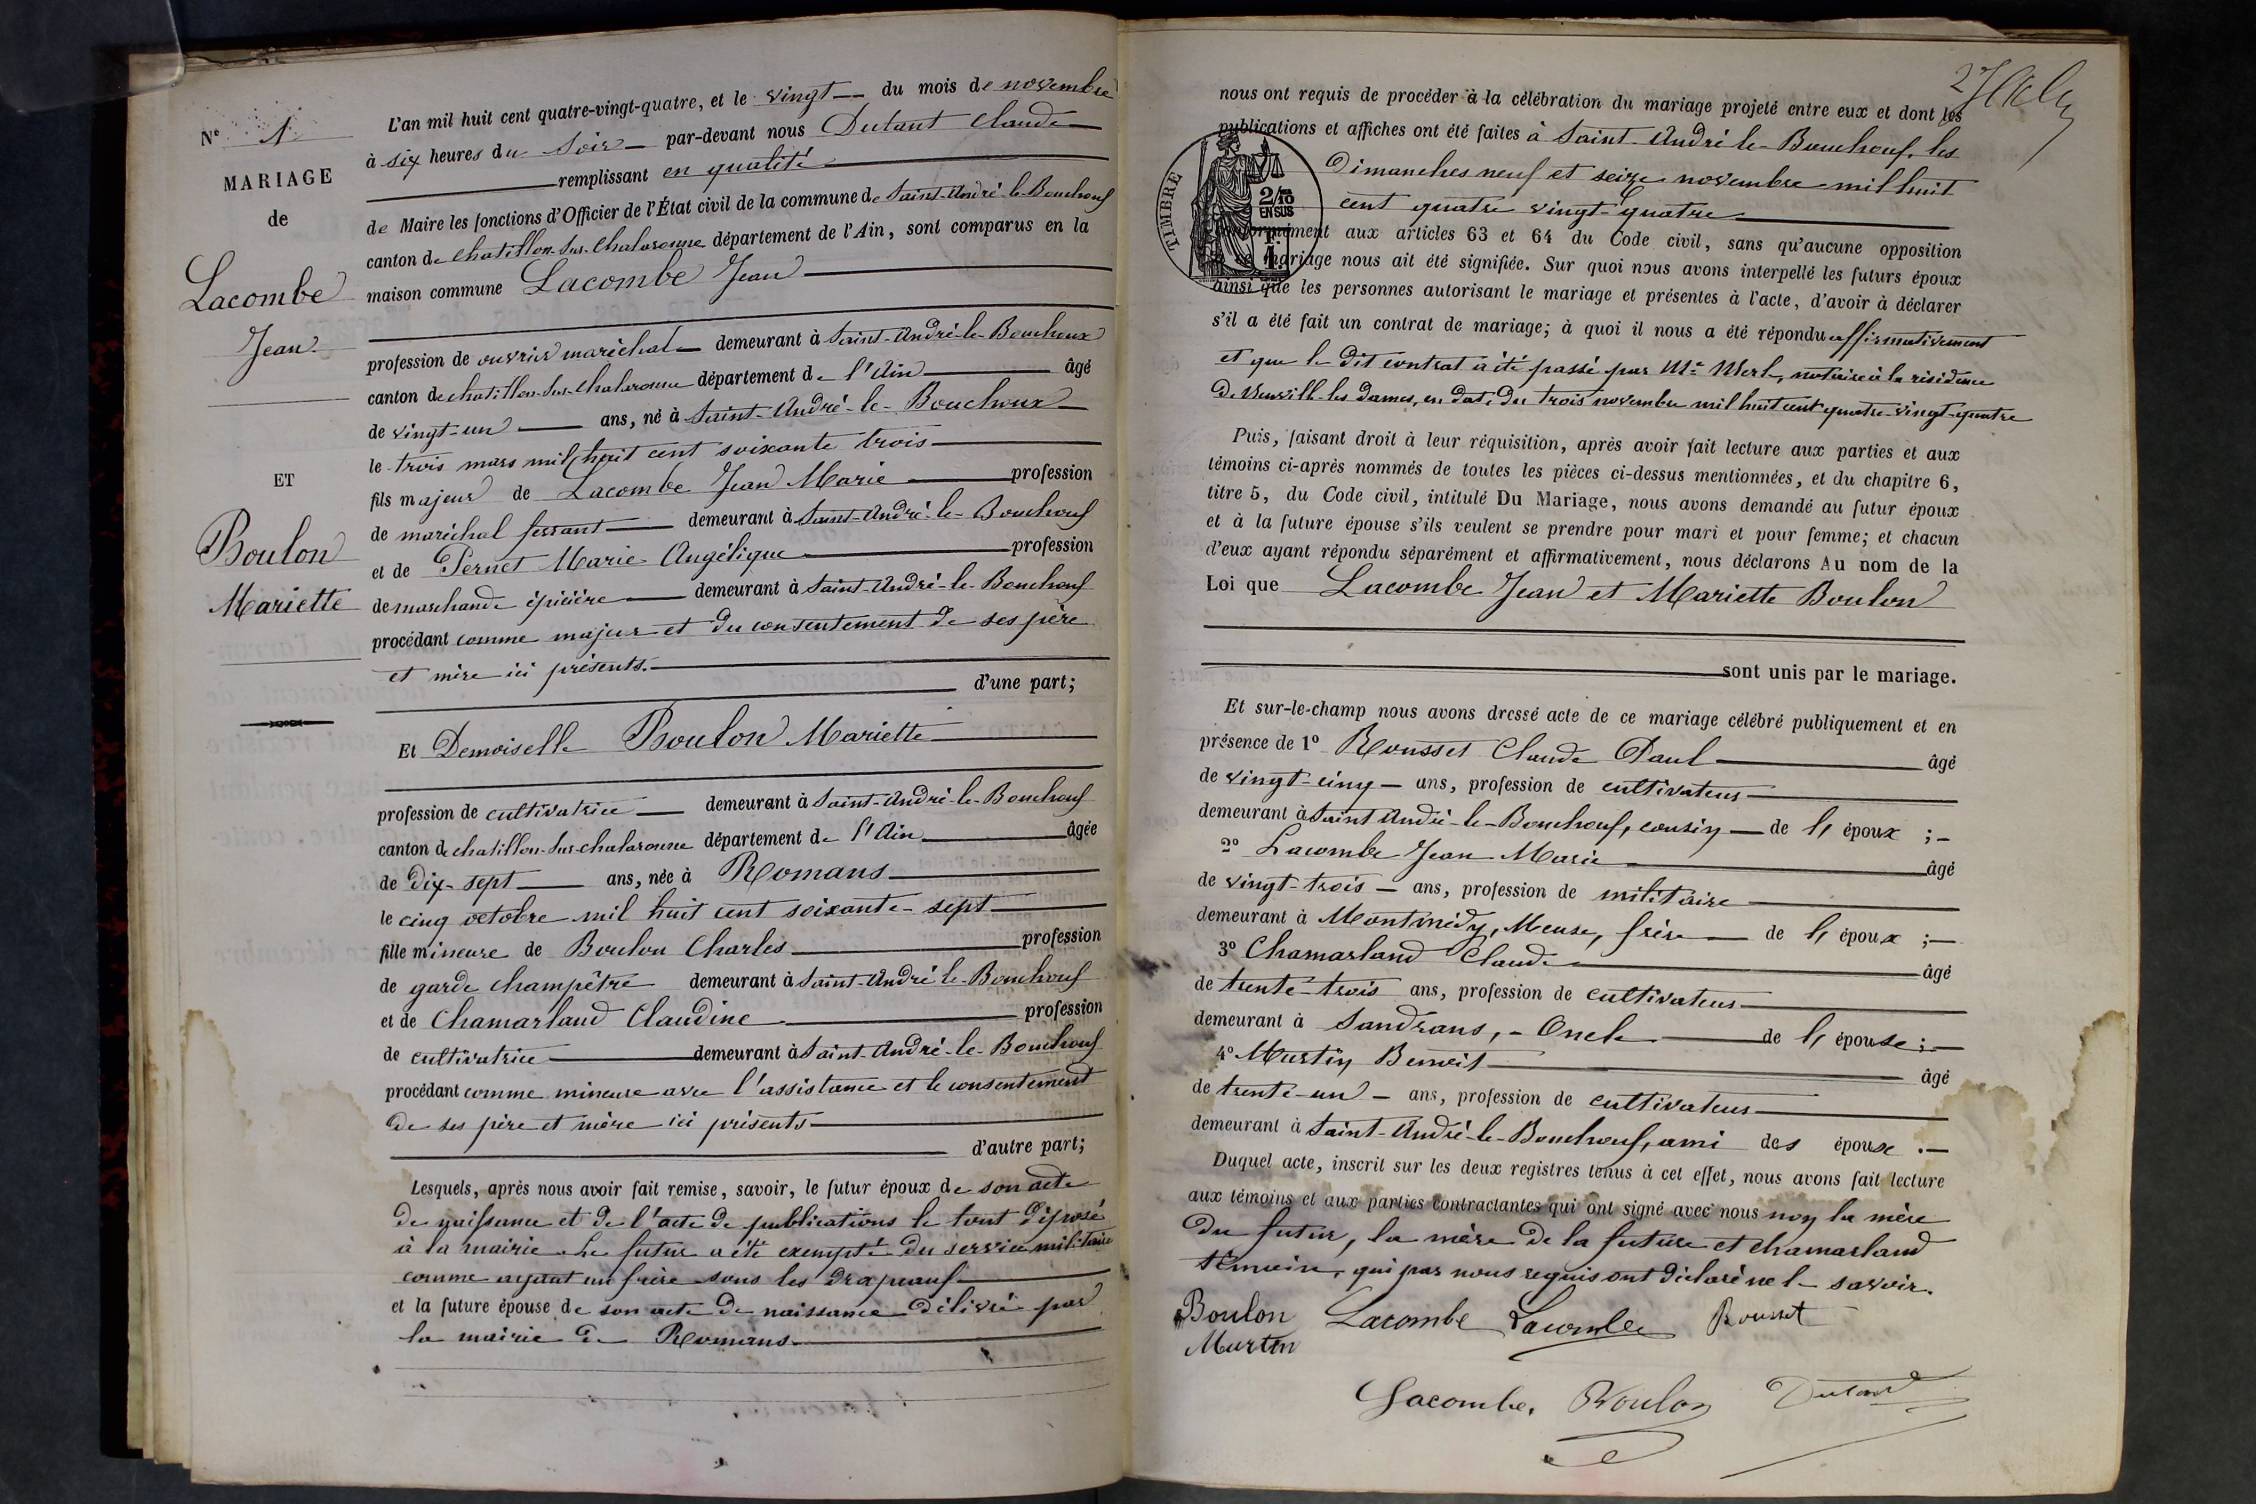 N° 1
MARIAGE
de
Lacombe
Jean
ET
Boulon
Mariette
L'an mil huit cent quatre-vingt-quatre, et le vingt du mois de novembre
à six heures du soir par-devant nous Dutant Claude
remplissant en qualité
de Maire les fonctions d'Officier de l'État civil de la commune de Saint-André-le-Bouchoux
canton de chatillon-sur-Chalaronne département de l'Ain, sont comparus en la
maison commune Lacombe Jean
profession de ouvrier maréchal demeurant à Saint-André-le-Bouchoux
canton de chatillon-sur-Chalaronne département de l'Ain âgé
de vingt-un ans, né à Saint-André-le-Bouchoux
le trois mars mil huit cent soixante trois
fils majeur de Lacombe Jean Marie profession
de maréchal ferrant demeurant à Saint-André-le-Bouchoux
et de Pernet Marie Angélique profession
de marchande épicière demeurant à Saint-André-le-Bouchoux
procédant comme majeur et du consentement de ses père
et mère ici présents.
d'une part;
Et Demoiselle Boulon Mariette
profession de cultivatrice demeurant à Saint-André-le-Bouchoux
canton de chatillon-sur-chalaronne département de l'Ain âgée
de dix-sept ans, née à Romans
le cinq octobre mil huit cent soixante-sept
fille mineure de Boulon Charles profession
de garde champêtre demeurant à Saint-André-le-Bouchoux
et de Chamarland Claudine profession
de cultivatrice demeurant à Saint-André-le-Bouchoux
procédant comme mineure avec l'assistance et le consentement
de ses père et mère ici présents
d'autre part;
Lesquels, après nous avoir fait remise, savoir, le futur époux de son acte
de naissance et de l'acte de publications le tout déposé
à la mairie. Le futur a été exempté du service militaire
comme ayant un frère sous les drapeaux
et la future épouse de son acte de naissance délivré par
la mairie de Romans
nous ont requis de procéder à la célébration du mariage projeté entre eux et dont les
publications et affiches ont été faites à Saint-André-le-Bouchoux, les
Dimanches neuf et seize novembre mil huit
cent quatre vingt-quatre
TIMBRE
2/10
EN SUS
aux articles 63 et 64 du Code civil, sans qu'aucune opposition
mariage nous ait été signifiée. Sur quoi nous avons interpellé les futurs époux
ainsi que les personnes autorisant le mariage et présentes à l'acte, d'avoir à déclarer
s'il a été fait un contrat de mariage; à quoi il nous a été répondu affirmativement
et que le dit contrat a été passé par Me Merle, notaire à la résidence
de Neuville-les-Dames, en date du trois novembre mil huit cent quatre-vingt-quatre
Puis, faisant droit à leur réquisition, après avoir fait lecture aux parties et aux
témoins ci-après nommés de toutes les pièces ci-dessus mentionnées, et du chapitre 6,
titre 5, du Code civil, intitulé Du Mariage, nous avons demandé au futur époux
et à la future épouse s'ils veulent se prendre pour mari et pour femme; et chacun
d'eux ayant répondu séparément et affirmativement, nous déclarons Au nom de la
Loi que Lacombe Jean et Mariette Boulon
sont unis par le mariage.
Et sur-le-champ nous avons dressé acte de ce mariage célébré publiquement et en
présence de 1° Rousset Claude Paul âgé
de vingt-cinq ans, profession de cultivateur
demeurant à Saint André-le-Bouchoux, cousin de l' époux ;
2° Lacombe Jean Marie âgé
de vingt-trois ans, profession de militaire
demeurant à Montmédy, Meuse, frère de l' époux ;
3° Chamarland Claude âgé
de trente-trois ans, profession de cultivateur
demeurant à Sandrans, Oncle de l' épouse ;
4° Martin Benoit âgé
de trente-un ans, profession de cultivateur
demeurant à Saint-André-le-Bouchoux, ami des épouse .
Duquel acte, inscrit sur les deux registres tenus à cet effet, nous avons fait lecture
aux témoins et aux parties contractantes qui ont signé avec nous non la mère
du futur, la mère de la future et Chamarland
témoin, qui par nous requis ont déclaré ne le savoir.
Boulon Lacombe Lacombe Rousset
Martin
Lacombe, Boulon Dutant